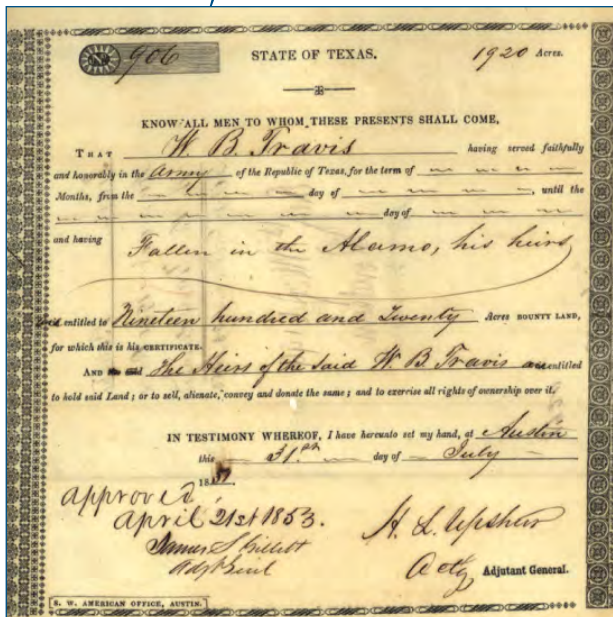 No 906 STATE OF TEXAS. 1920 Acres.
KNOW ALL MEN TO WHOM THESE PRESENTS SHALL COME,
THAT W. B. Travis having served faithfully
and honorably in the Army of the Republic of Texas, for the term of
Months, from the day of , until the
day of
and having Fallen in the Alamo, his heirs
entitled to Nineteen hundred and Twenty Acres BOUNTY LAND,
for which this is his CERTIFICATE.
AND The Heirs of the Said W B Travis are entitled
to hold said Land; or to sell, alienate, convey and donate the same; and to exercise all rights of ownership over it.
IN TESTIMONY WHEREOF, I have hereunto set my hand, at Austin
this 31st day of July
18
approved
april 21st 1853.
James S Gillett
Adjt Genl
H. L. Upshur
Actg Adjutant General.
S. W. AMERICAN OFFICE, AUSTIN.